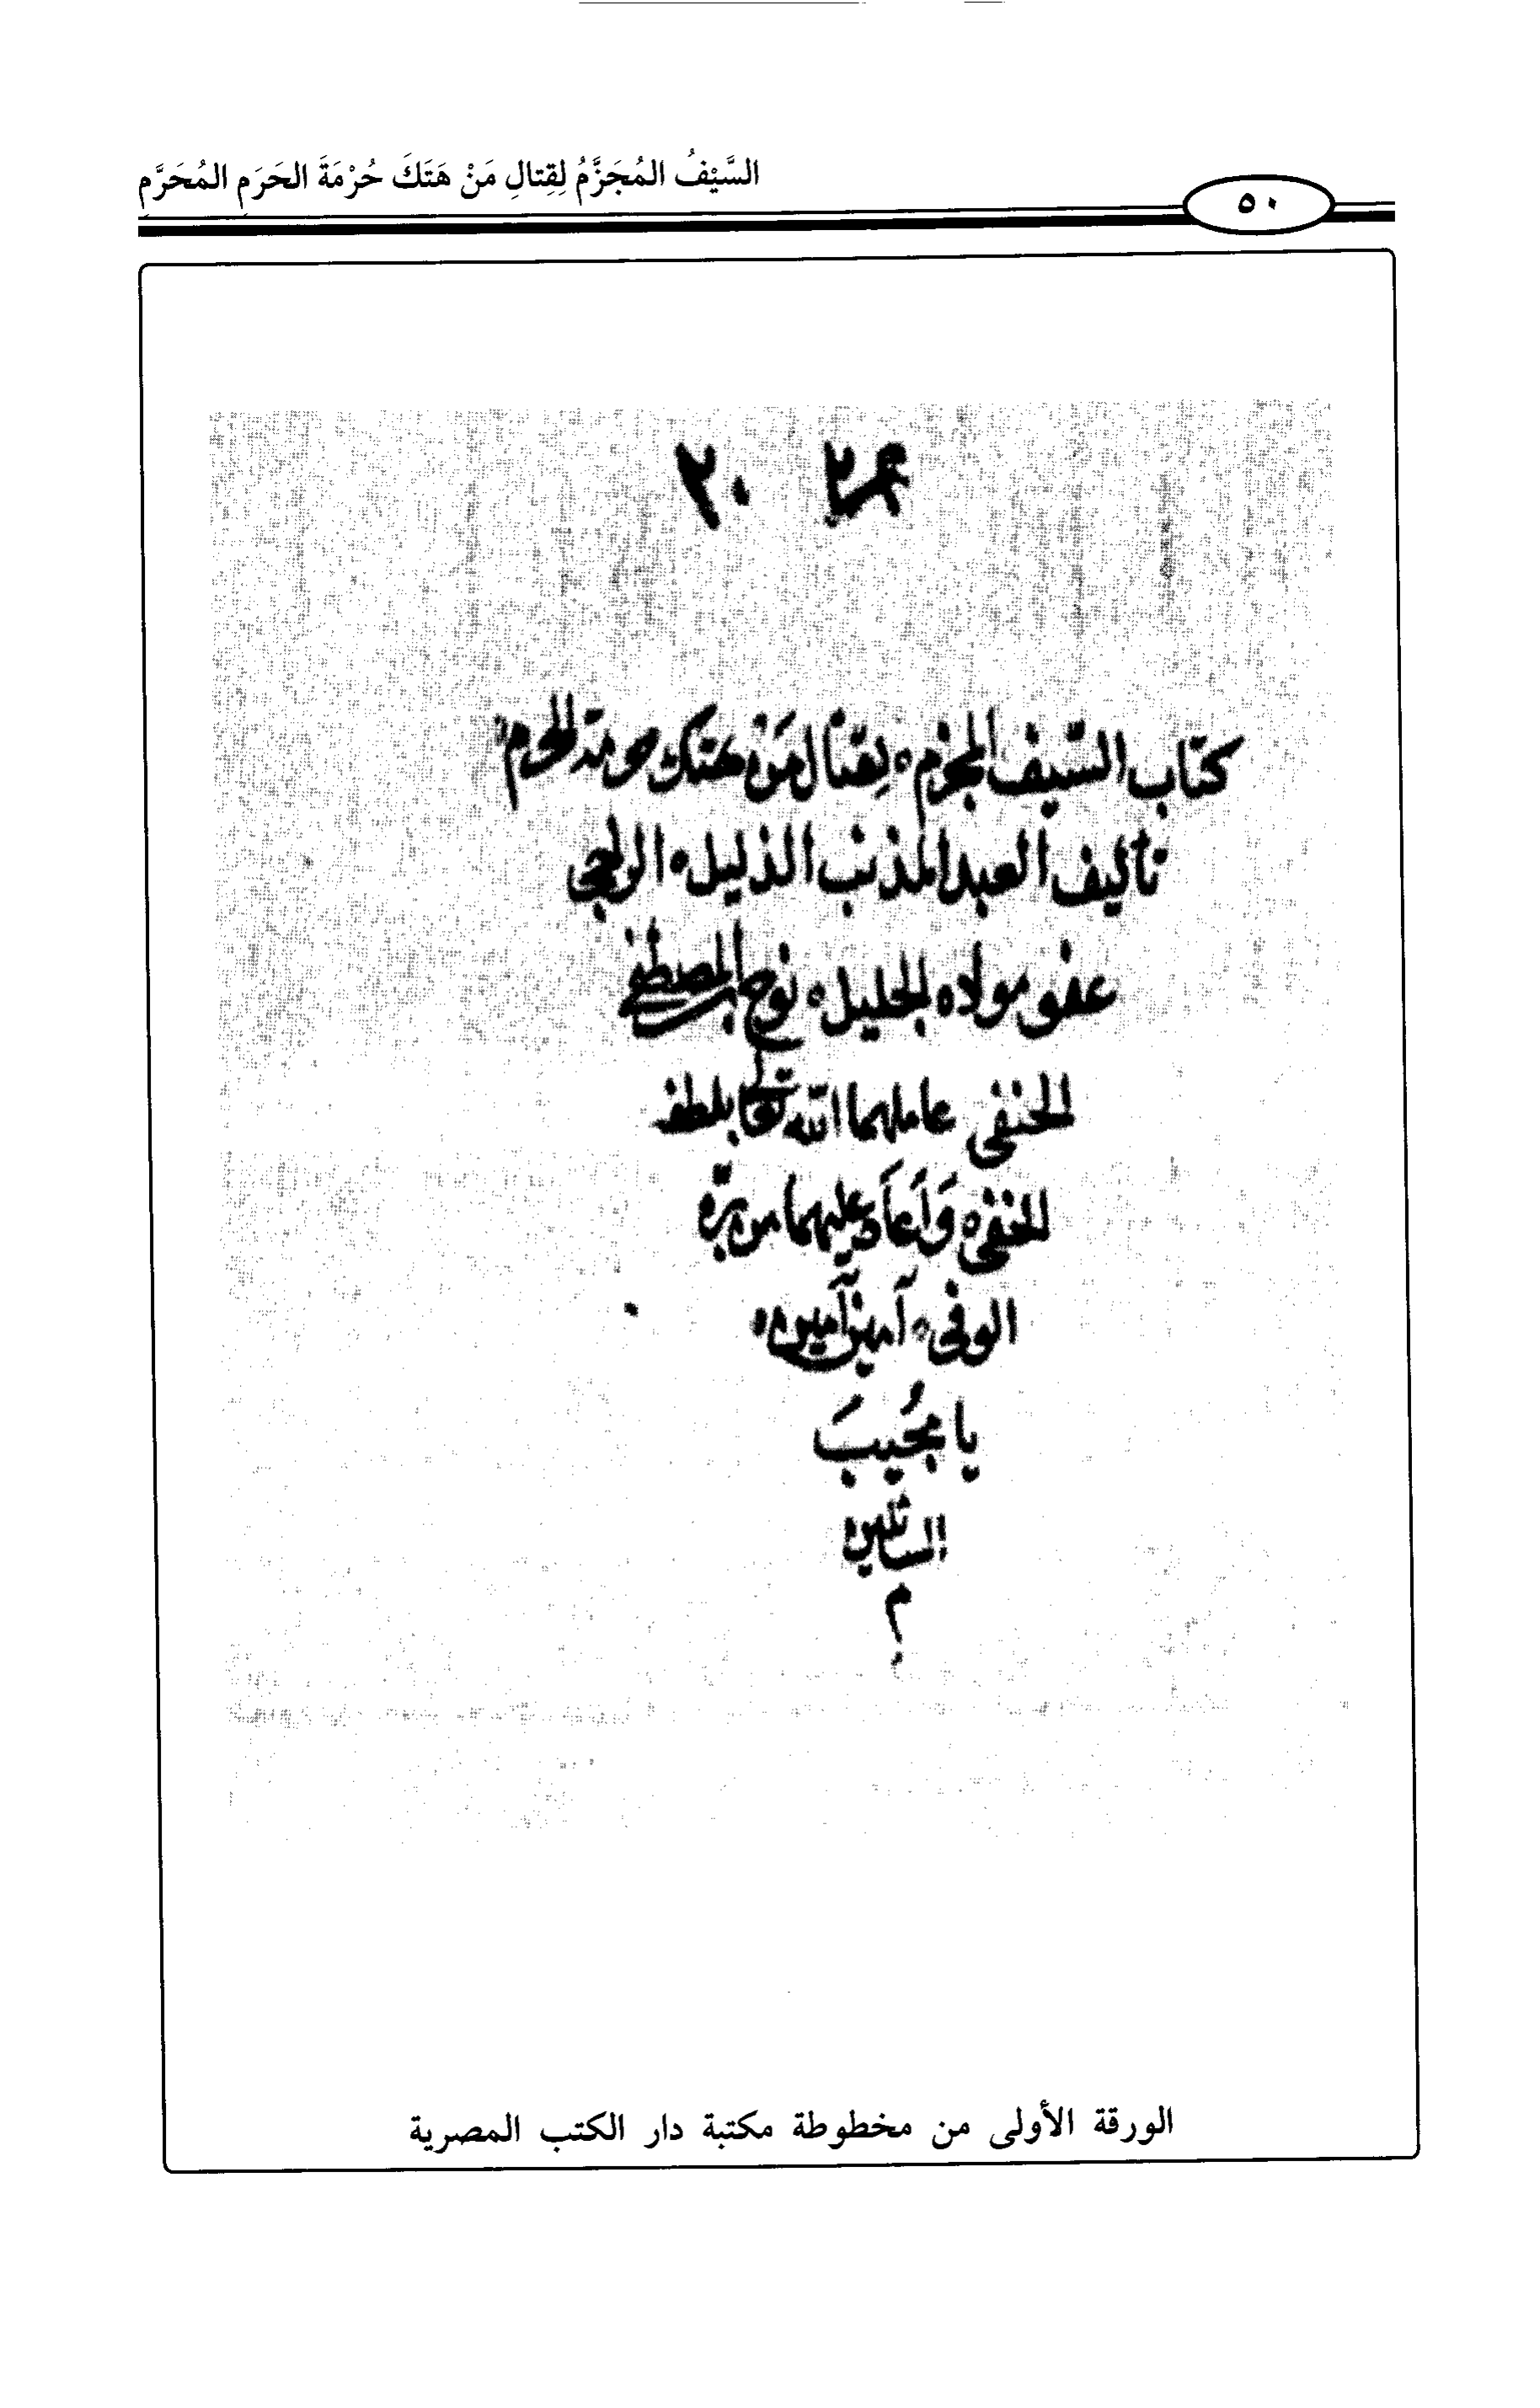 السَّيْفُ المُجَزَّمُ لِقِتالِ مَنْ هَتَكَ حُرْمَةَ الحَرَمِ المُحَرَّمِ
٥٠
كتاب السّيف المجزم ه لقتال مَنْ هتك حرمة الحرم
تأليف العبد المذنب الذليل ه الراجي
عفو مولاه ه الجليل ه نوح بن المصطفى
الحنفى عاملهما الله تعالى بلطفه
الخفى ه وَأَعَادَ عليهما من برّه
الوفى ه آمين آمين ه
يا مجُيبَ
السائلين
م
الورقة الأولى من مخطوطة مكتبة دار الكتب المصرية